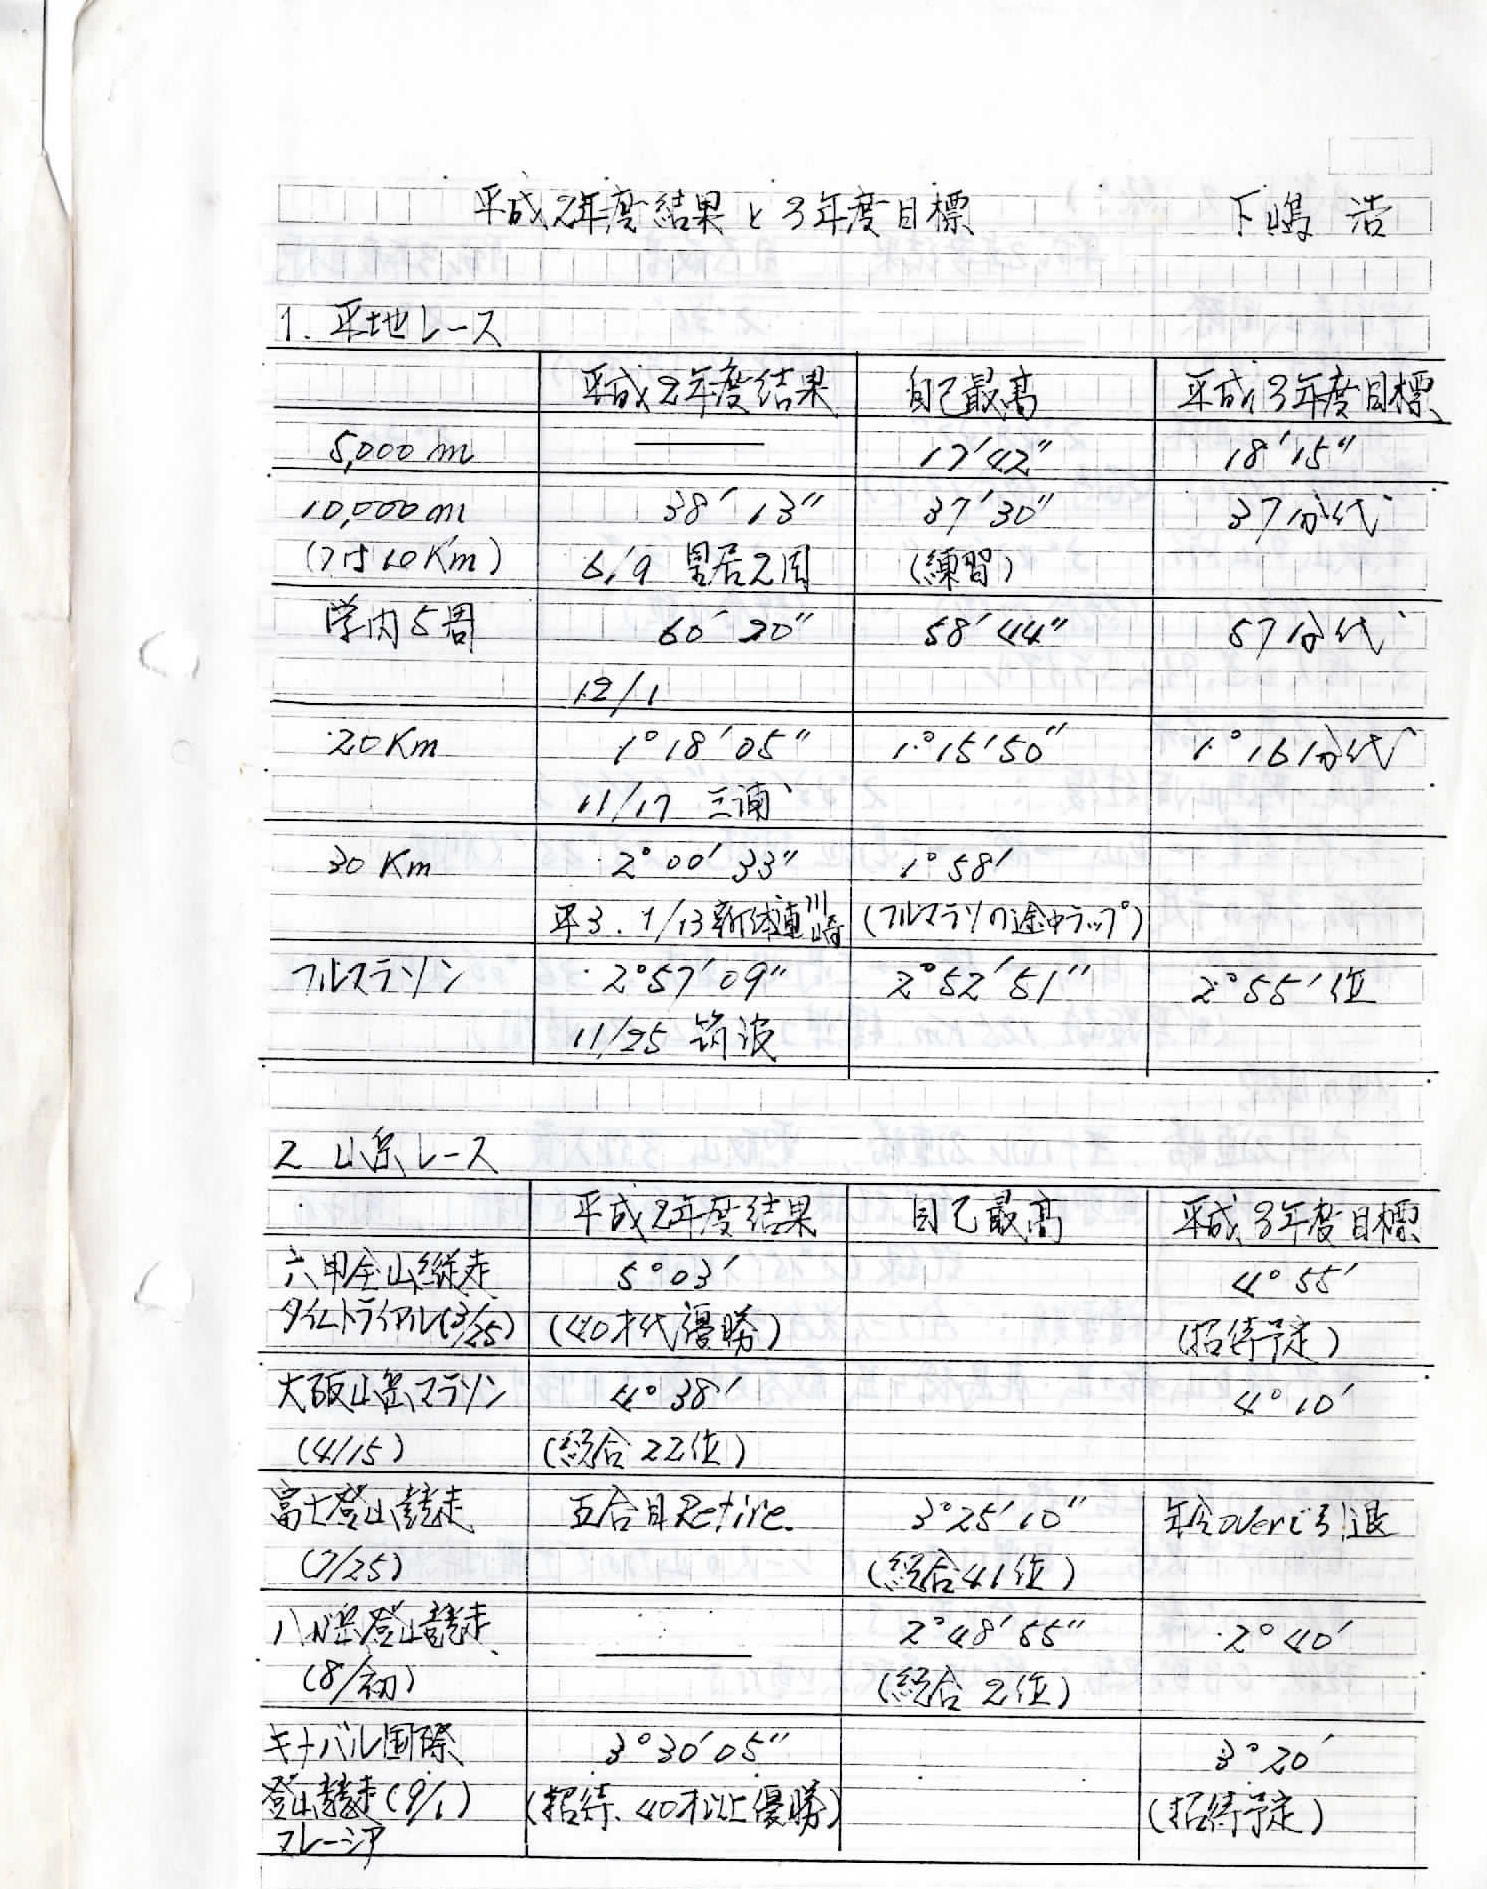 平成2年度結果と3年度目標 下嶋 浩
1. 平地レース
平成2年度結果 自己最高 平成3年度目標
5,000m ―― 17'42" 18'15"
10,000m 38'13" 37'30" 37分代
(又は10Km) 6/9 皇居2周 (練習)
学内5周 60'20" 58'44" 57分代
12/1
20Km 1°18'05" 1°15'50" 1°16分代
11/17 三浦
30Km 2°00'33" 1°58'
平3.1/13新体連川崎 (フルマラソンの途中ラップ)
フルマラソン 2°57'09" 2°52'51" 2°55'位
11/25 筑波
2 山岳レース
平成2年度結果 自己最高 平成3年度目標
六甲全山縦走 5°03' 4°55'
タイムトライアル(3/25) (40才代優勝) (招待予定)
大阪山岳マラソン 4°38' 4°10'
(4/15) (総合22位)
富士登山競走 五合目Retire. 3°25'10" 年令overで引退
(7/25) (総合41位)
八ヶ岳登山競走 ―― 2°48'55" 2°40'
(8/初) (総合2位)
キナバル国際 3°30'05" 3°20'
登山競走(9/1) (招待、40才以上優勝) (招待予定)
マレーシア